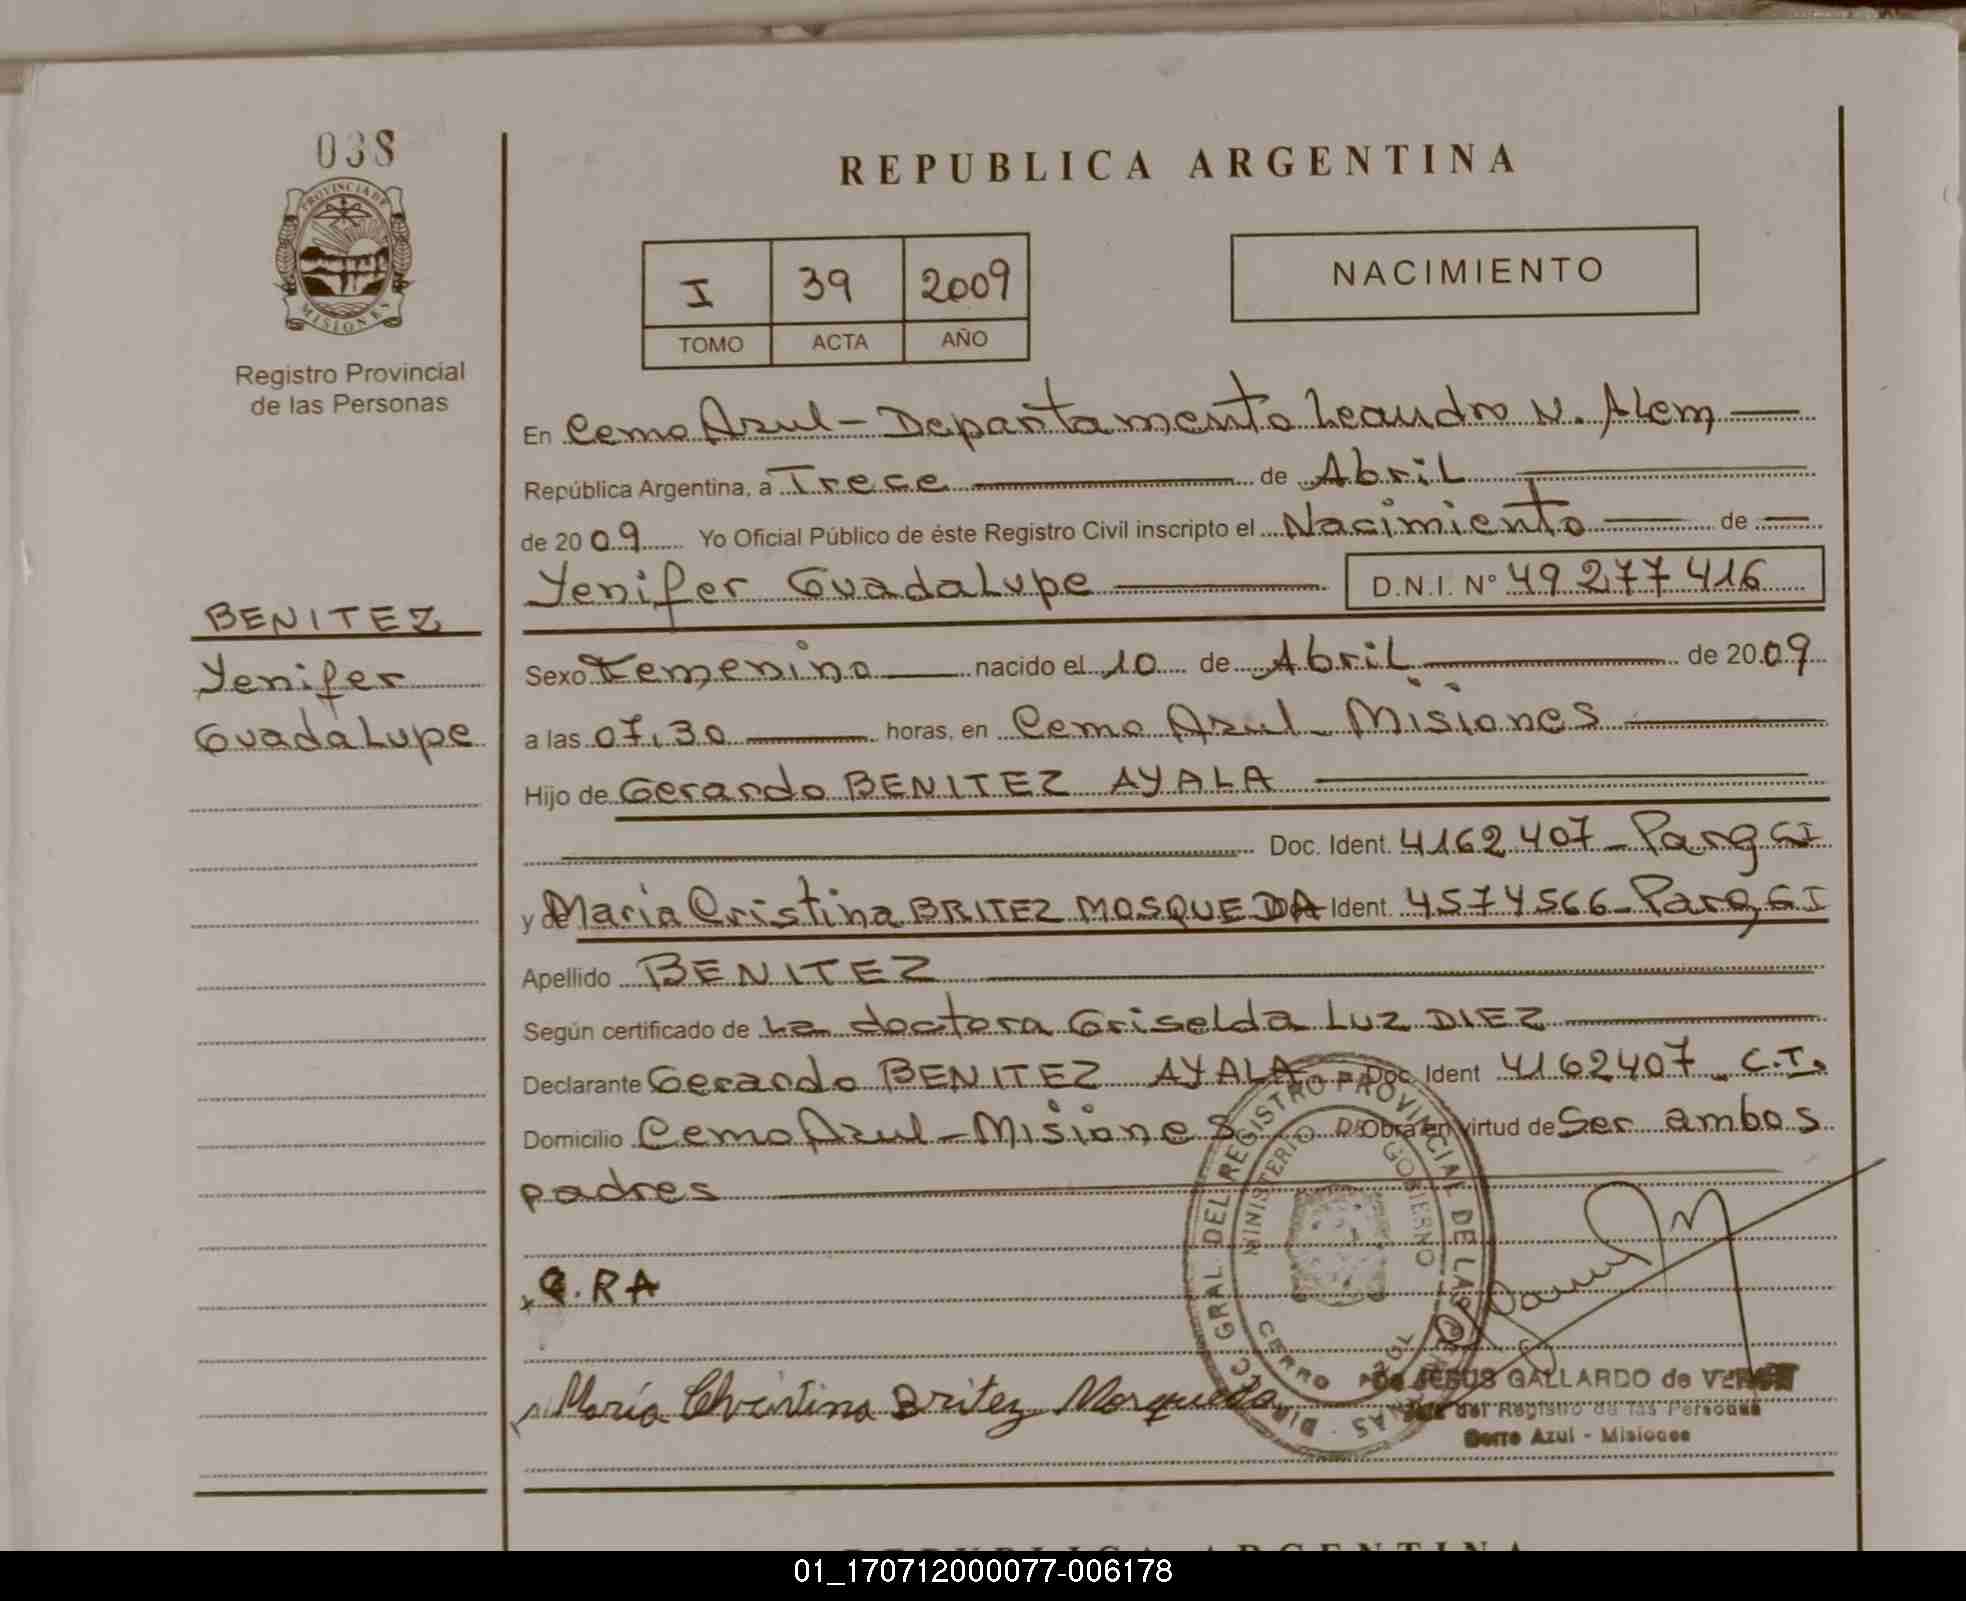 038
PROVINCIA DE
MISIONES
Registro Provincial
de las Personas
REPUBLICA ARGENTINA
I 39 2009
TOMO ACTA AÑO
NACIMIENTO
En Cerro Azul - Departamento Leandro N. Alem
República Argentina, a Trece de Abril
de 2009 Yo Oficial Público de éste Registro Civil inscripto el Nacimiento de
Yenifer Guadalupe D.N.I. N° 49.277.416
BENITEZ
Yenifer
Guadalupe
Sexo Femenino nacido el 10 de Abril de 2009
a las 07,30 horas, en Cerro Azul - Misiones
Hijo de Gerardo BENITEZ AYALA
Doc. Ident. 4162407 - Parg CI
y de María Cristina BRITEZ MOSQUEDA Ident. 4574566 - Parg, CI
Apellido BENITEZ
Según certificado de La doctora Griselda Luz DIEZ
Declarante Gerardo BENITEZ AYALA Doc. Ident 4162407 - C.I.
Domicilio Cerro Azul - Misiones Obra en virtud de Ser ambos
padres
x G.RA
María Christina Britez Morqueda
DIREC. GRAL. DEL REGISTRO PROVINCIAL DE LAS PERSONAS
MINISTERIO DE GOBIERNO
CERRO AZUL
JESUS GALLARDO de
del Registro de las Personas
Cerro Azul - Misiones
REPUBLICA ARGENTINA
01_170712000077-006178